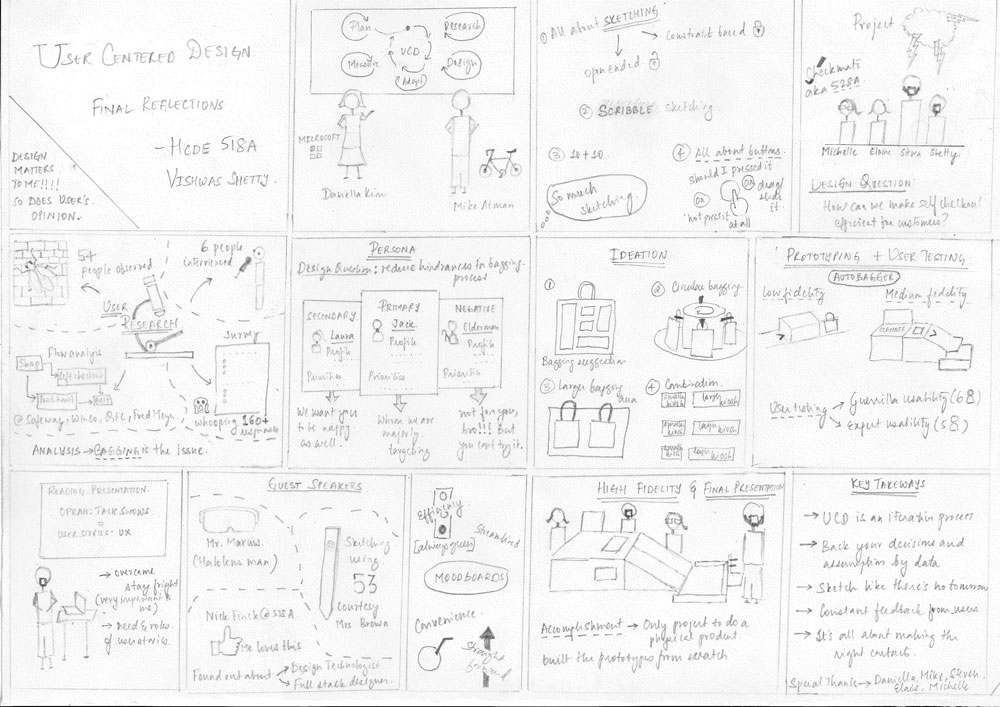 USER CENTERED DESIGN
FINAL REFLECTIONS
- HCDE 518A
VISHWAS SHETTY.
DESIGN
MATTERS
TO ME!!!!
SO DOES USER'S
OPINION.
Plan
Research
UCD
Measure
Adapt
Design
MICROSOFT
Daniella Kim
Mike Atman
① All about SKETCHING
→ Constraint based
open ended
② SCRIBBLE sketching
③ 10+10
④ All about buttons.
should I press it
OR
drag/
slide
it.
OR
not press it
at all
So much
sketching.
Project
Checkmate
aka 528A
Michelle Elaine Steven Shetty
DESIGN QUESTION:
How can we make self checkout
efficient for customers?
54
people observed
6 people
interviewed
USER
RESEARCH
Survey
Flow analysis
Shop
Self checkout
Food court
Exit
@ Safeway, Winco, QFC, Fred Meyer
whooping 160+
responses
ANALYSIS → BAGGING is the issue.
PERSONA
Design Question: reduce hindrances in bagging
process
SECONDARY
Laura
Profile
Priorities
PRIMARY
Jack
Profile
Priorities
NEGATIVE
Elderman
Profile
Priorities
We want you
to be happy
as well.
Whom we are
majorly
targeting
not for you,
bro!!! But
you can try it.
IDEATION
①
Bagging suggestion
② Circular bagging
③ Larger bagging
area
④ Combination.
small kiosk
large kiosk
small kiosk
large kiosk
small kiosk
large kiosk
PROTOTYPING + USER TESTING
AUTOBAGGER
Low fidelity
Medium fidelity
SCANNER
User testing
→ Guerrilla usability (6)
→ Expert usability (5)
READING PRESENTATION.
OPRAH: TALK SHOWS
=
USER STORIES: UX
→ overcame
stage fright
(very important to
me)
→ need & roles
of user stories.
GUEST SPEAKERS
Mr. Marcus
(Hololens man)
Sketching
using
53
courtesy
Mrs Brown
Nick Finck @ 518A
Me loves this
Found out about
→ Design Technologist
→ Full stack designer.
Efficiency
[always green]
Streamlined
MOODBOARDS
Convenience
Straight
forward
HIGH FIDELITY & FINAL PRESENTATION
Accomplishment → Only project to do a
physical product
built the prototypes from scratch
KEY TAKEWAYS
→ UCD is an iterative process
→ Back your decisions and
assumption by data
→ Sketch like there's no tomorrow
→ Constant feedback from users
→ It's all about making the
right contacts.
Special Thanks → Daniella, Mike, Steven
Elaine, Michelle